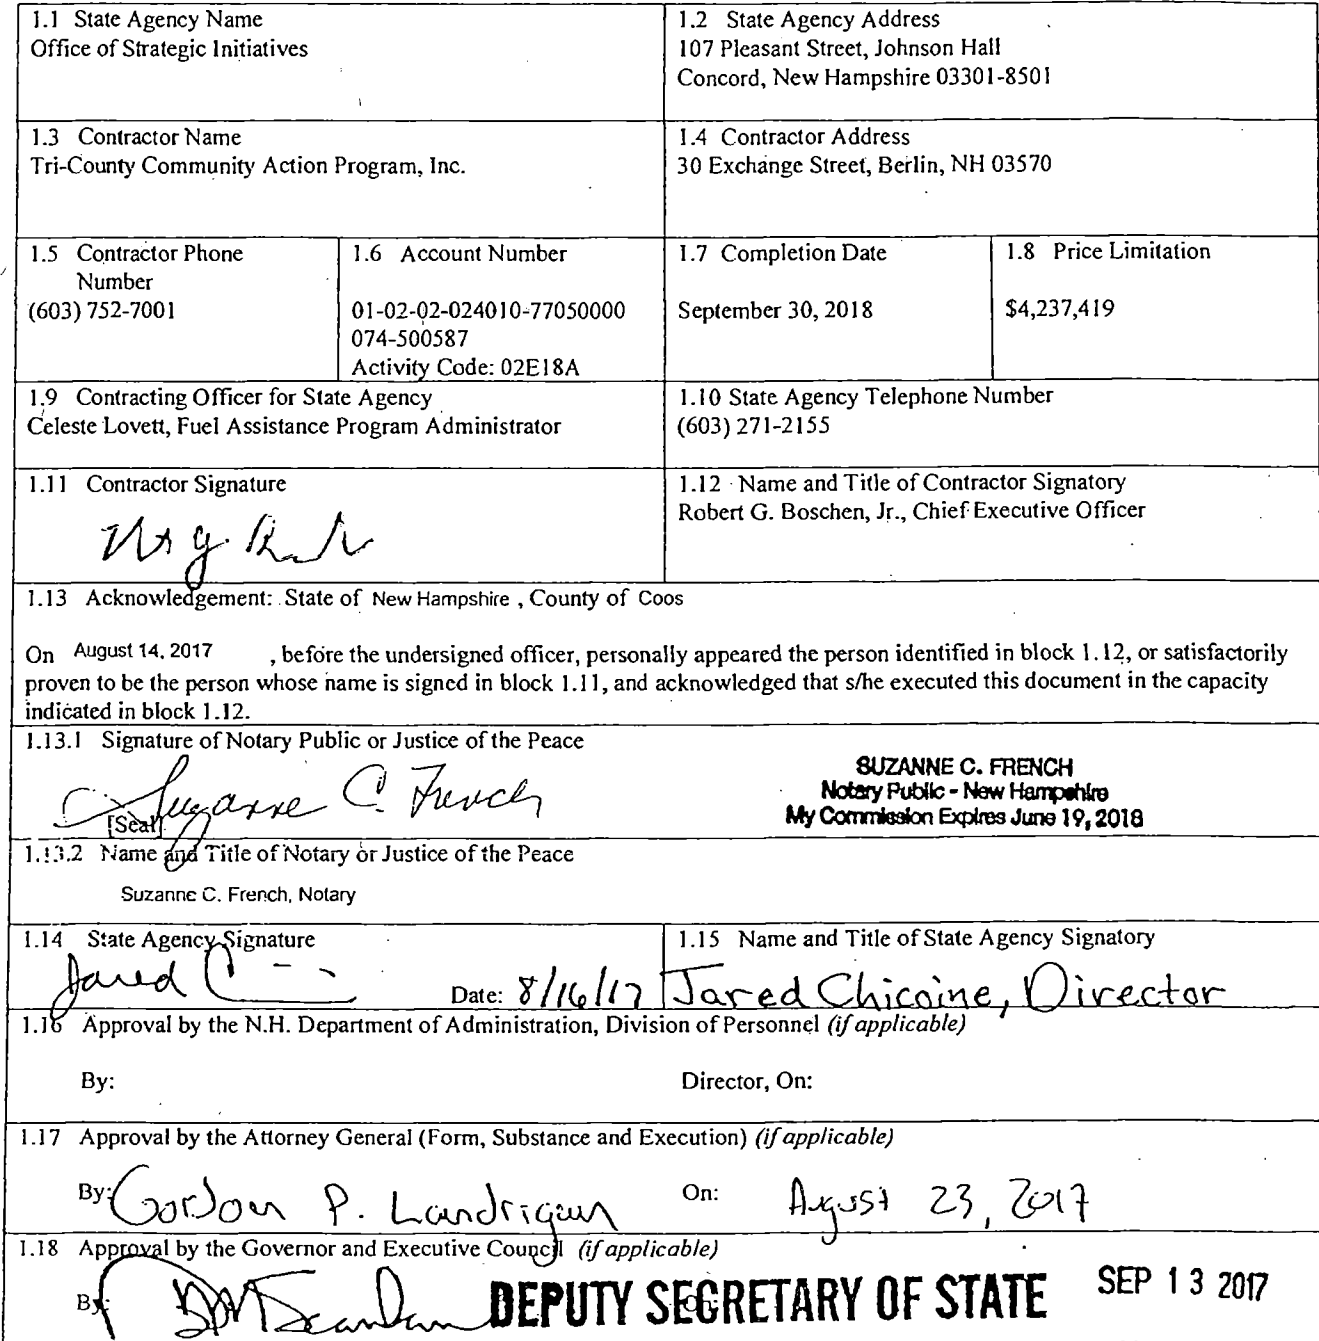 1.1 State Agency Name
Office of Strategic Initiatives
1.2 State Agency Address
107 Pleasant Street, Johnson Hall
Concord, New Hampshire 03301-8501
1.3 Contractor Name
Tri-County Community Action Program, Inc.
1.4 Contractor Address
30 Exchange Street, Berlin, NH 03570
1.5 Contractor Phone
Number
(603) 752-7001
1.6 Account Number
01-02-02-024010-77050000
074-500587
Activity Code: 02E18A
1.7 Completion Date
September 30, 2018
1.8 Price Limitation
$4,237,419
1.9 Contracting Officer for State Agency
Celeste Lovett, Fuel Assistance Program Administrator
1.10 State Agency Telephone Number
(603) 271-2155
1.11 Contractor Signature
1.12 Name and Title of Contractor Signatory
Robert G. Boschen, Jr., Chief Executive Officer
1.13 Acknowledgement: State of New Hampshire , County of Coos
On August 14, 2017 , before the undersigned officer, personally appeared the person identified in block 1.12, or satisfactorily
proven to be the person whose name is signed in block 1.11, and acknowledged that s/he executed this document in the capacity
indicated in block 1.12.
1.13.1 Signature of Notary Public or Justice of the Peace
Suzanne C. French
[Seal]
SUZANNE C. FRENCH
Notary Public - New Hampshire
My Commission Expires June 19, 2018
1.13.2 Name and Title of Notary or Justice of the Peace
Suzanne C. French, Notary
1.14 State Agency Signature
Jared C
Date: 8/16/17
1.15 Name and Title of State Agency Signatory
Jared Chicoine, Director
1.16 Approval by the N.H. Department of Administration, Division of Personnel (if applicable)
By:
Director, On:
1.17 Approval by the Attorney General (Form, Substance and Execution) (if applicable)
By: Gordon P. Landrigan On: August 23, 2017
1.18 Approval by the Governor and Executive Council (if applicable)
By: DEPUTY SECRETARY OF STATE SEP 13 2017